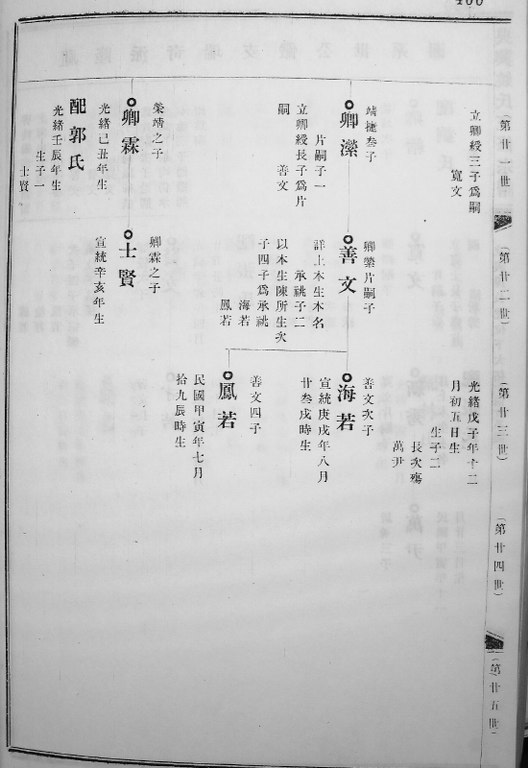 400
(第廿一世)
(第廿二世)
(第廿三世)
(第廿四世)
(第廿五世)
立卿綬三子為嗣
寬文
靖捷叁子
卿瀠
片嗣子一
立卿綬長子為片
嗣
善文
榮靖之子
卿霖
光緒己丑年生
配郭氏
光緒壬辰年生
生子一
士賢
卿縈片嗣子
善文
詳上本生本名
承祧子二
以本生陳所生次
子四子為承祧
海若
鳳若
卿霖之子
士賢
宣統辛亥年生
光緒戊子年十二
月初五日生
生子二
長次殤
萬尹
善文次子
海若
宣統庚戌年八月
廿叁戌時生
善文四子
鳳若
民國甲寅年七月
拾九辰時生